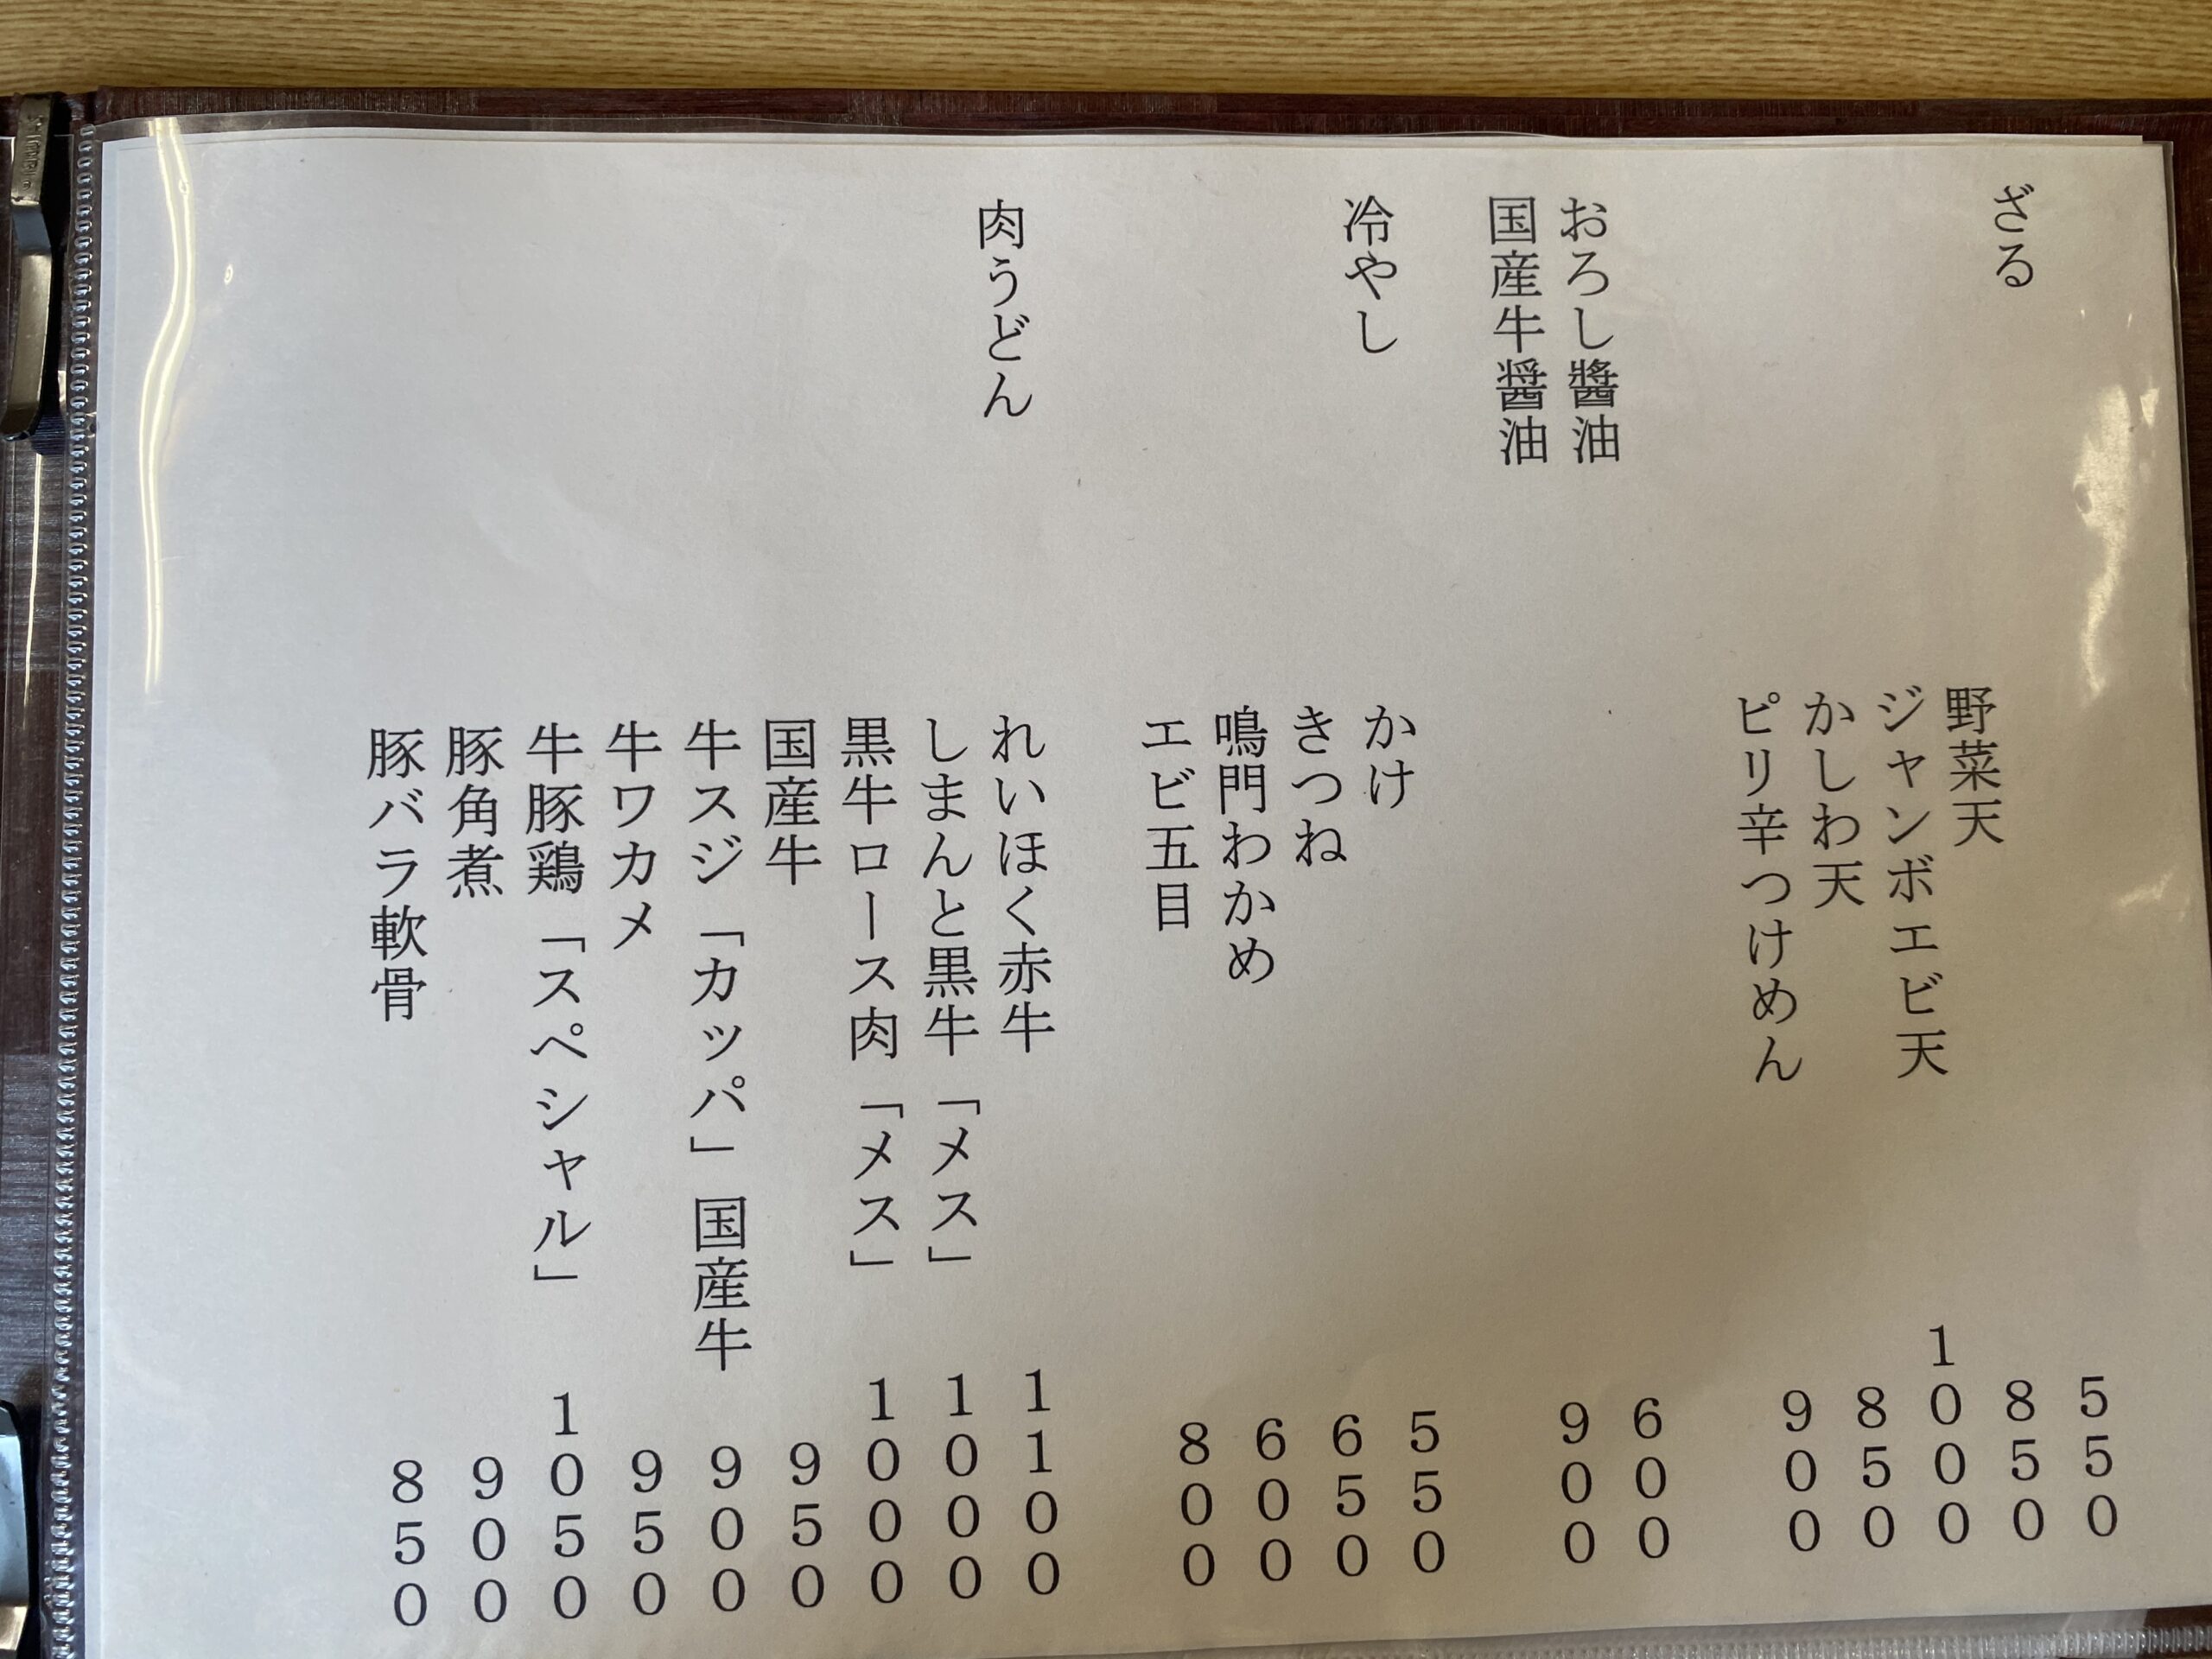 ざる 550
野菜天 850
ジャンボエビ天 1000
かしわ天 850
ピリ辛つけめん 900
おろし醬油 600
国産牛醤油 900
冷やし
かけ 550
きつね 650
鳴門わかめ 600
エビ五目 800
肉うどん
れいほく赤牛 1100
しまんと黒牛「メス」 1000
黒牛ロース肉「メス」 1000
国産牛 950
牛スジ「カッパ」国産牛 900
牛ワカメ 950
牛豚鶏「スペシャル」 1050
豚角煮 900
豚バラ軟骨 850